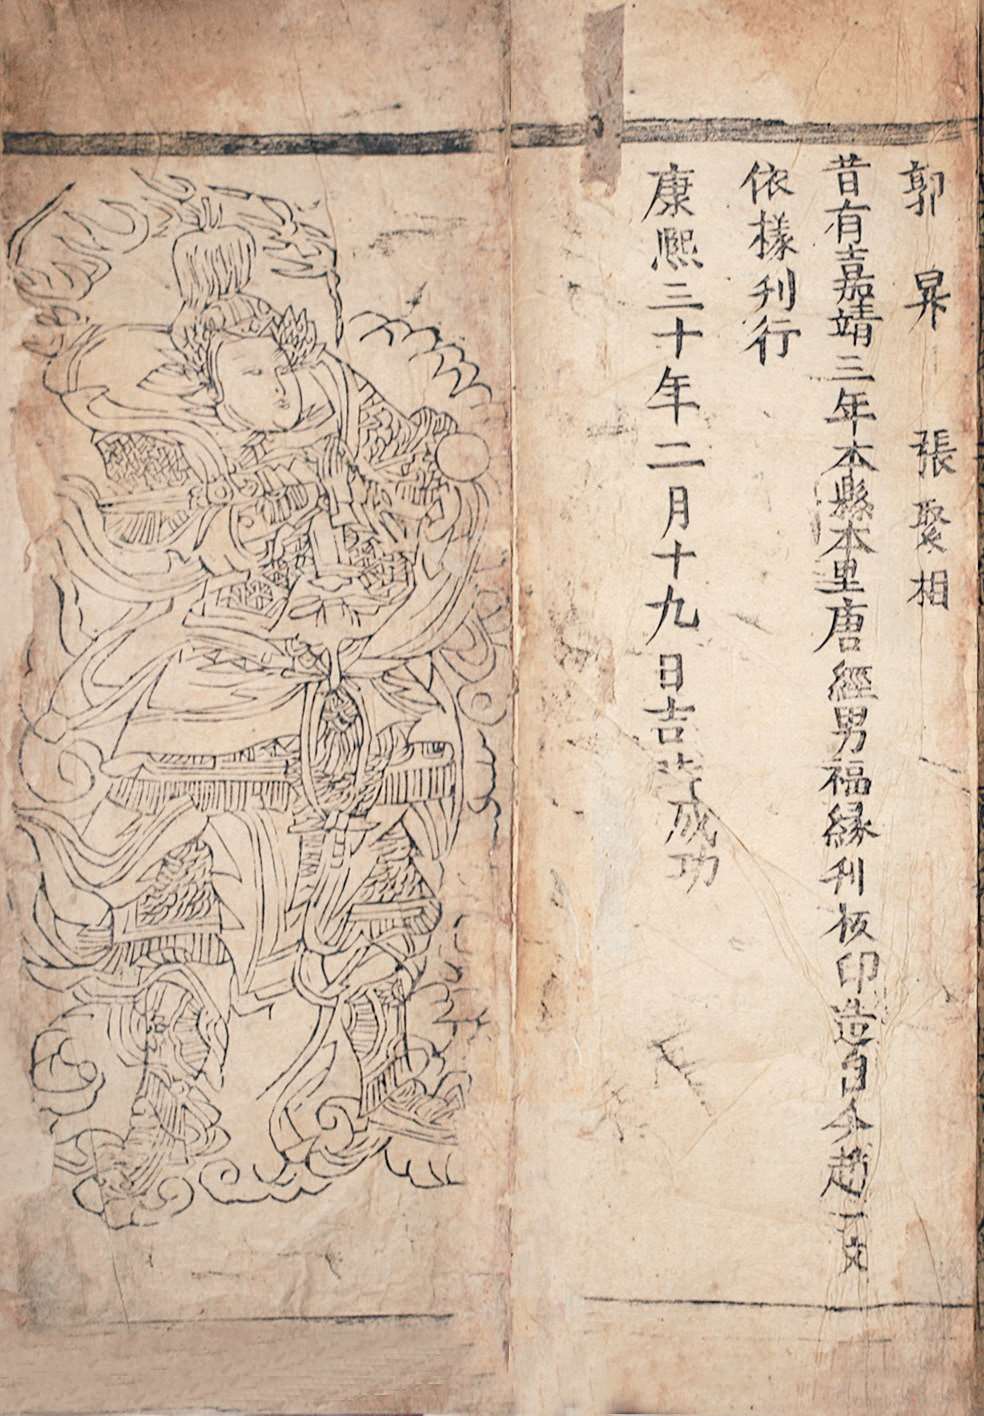 郭 昇 張聚相
昔有嘉靖三年本縣本里唐經男福緣刊板印造自今趙一文
依樣刊行
康熙三十年二月十九日吉 成功